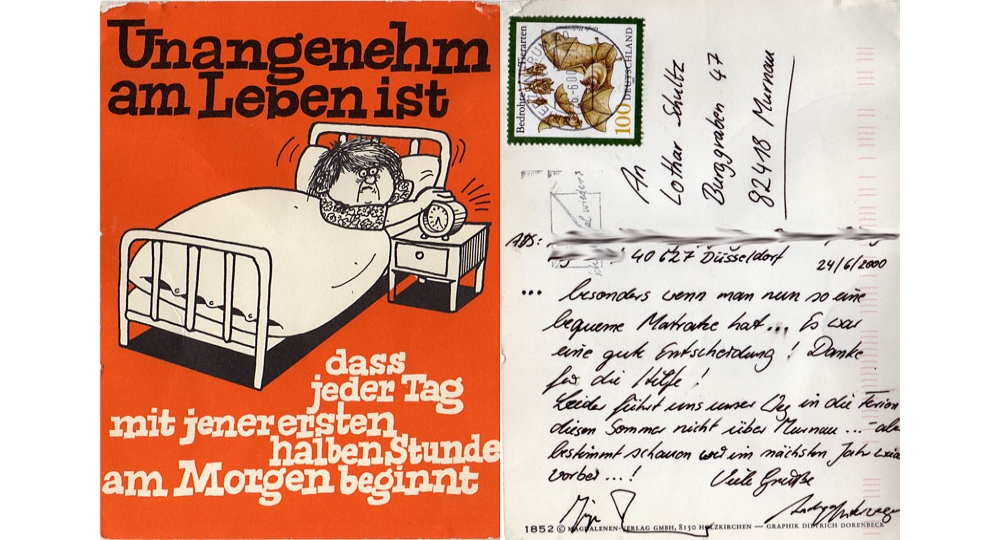 Unangenehm
am Leben ist
dass
jeder Tag
mit jener ersten
halben Stunde
am Morgen beginnt
Bedrohte Tierarten
100 DEUTSCHLAND
An
Lothar Schultz
Burggraben 47
82418 Murnau
ABS:
40627 Düsseldorf
24/6/2000
... besonders wenn man nun so eine
bequeme Matratze hat... Es war
eine gute Entscheidung! Danke
für die Hilfe!
Leider führt uns unser Weg in die Ferien
diesen Sommer nicht über Murnau...- 
bestimmt schauen wir im nächsten Jahr
vorbei...! Viele Grüße
1852 © MAGDALENEN-VERLAG GMBH, 8150 HOLZKIRCHEN — GRAPHIK DIETRICH DORENBECK